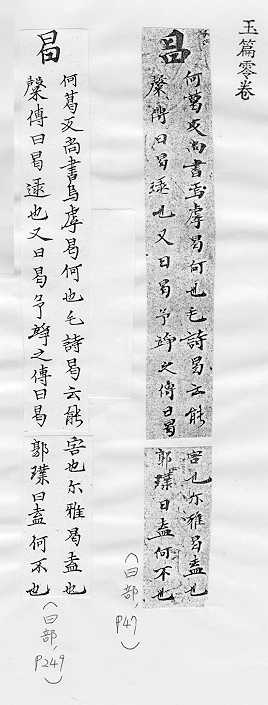 玉篇零卷
曷
何葛反尚書烏虖曷何也毛詩曷云能
穀傳曰曷逮也又曰曷予竫之傳曰曷
害也尒雅曷盍也
郭璞曰盍何不也
(曰部, P47)
曷
何葛反尚書烏虖曷何也毛詩曷云能
穀傳曰曷逮也又曰曷予竫之傳曰曷
害也尒雅曷盍也
郭璞曰盍何不也
(曰部, P249)